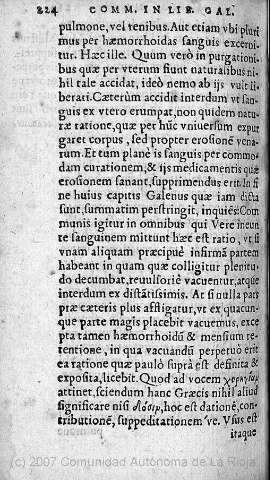 224 COMM. IN LIB. GAL.
pulmone, vel renibus. Aut etiam vbi pluri
mus per hæmorrhoidas sanguis excerni-
tur. Hæc ille. Quùm verò in purgationi-
bus quæ per vterum fiunt naturalibus ni-
hil tale accidat, ideò nemo ab ijs vult li-
berari. Cæterùm accidit interdum vt san-
guis ex vtero erumpat, non quidem natu-
ræ ratione, quæ per hũc vniuersum expur
garet corpus, sed propter erosionẽ vena-
rum. Et tum planè is sanguis per commo-
dam curationem, & ijs medicamentis quæ
erosionem sanant, supprimendus erit. In fi
ne huius capitis Galenus quæ iam dicta
sunt, summatim perstringit, inquiẽs: Com
munis igitur in omnibus qui Vere ineun
te sanguinem mittunt hæc est ratio, vt si
vnam aliquam præcipuè infirmã partem
habeant in quam quæ colligitur plenitu-
do decumbat, reuulsoriè vacuentur, atque
interdum ex distãtissimis. At si nulla pars
præ cæteris plus affligatur, vt ex quacun-
que parte magis placebit vacuemus, exce
pta tamen hæmorrhoidũ & mensium re-
tentione, in qua vacuandũ perpetuò erit
ea ratione quæ paulò suprà est definita &
exposita, licebit. Quod ad vocem
attinet, sciendum hanc Græcis nihil aliud
significare nisi δόσιν, hoc est dationẽ, con-
tributionẽ, suppeditationem ve. Vsus est
itaque
(c) 2007 Comunidad Autónoma de La Rioja